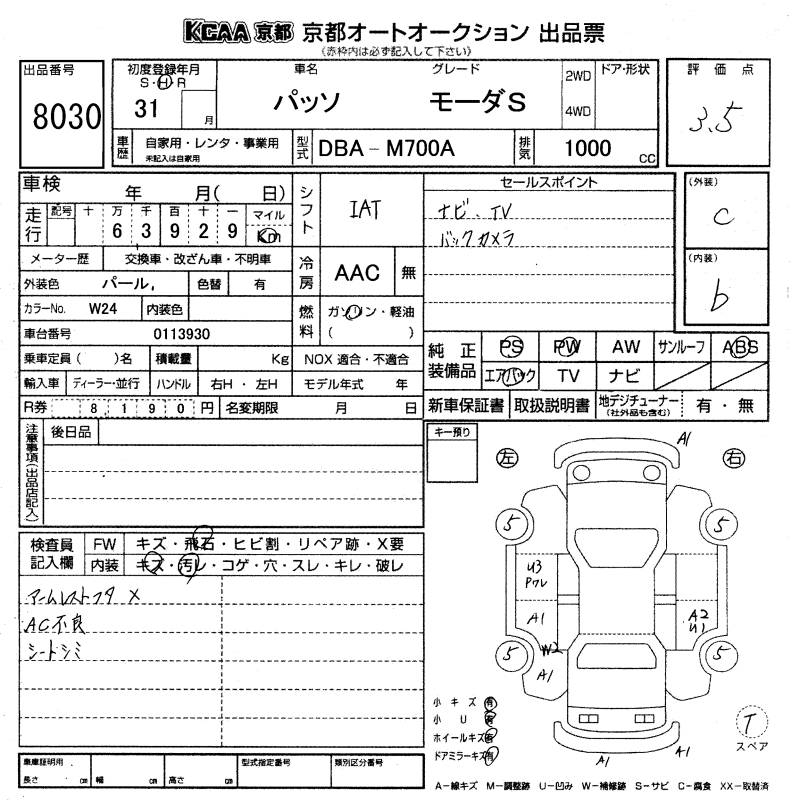 KCAA 京都 京都オートオークション 出品票
(赤枠内は必ず記入して下さい)
出品番号
8030
初度登録年月
S・H・R
31
月
車名
パッソ
グレード
モーダS
2WD
4WD
ドア・形状
車歴
自家用・レンタ・事業用
未記入は自家用
型式
DBA-M700A
排気
1000
CC
評価点
3.5
車検 年 月( 日)
走行
記号 十 万 千 百 十 一 マイル
6 3 9 2 9 Km
メーター歴 交換車・改ざん車・不明車
外装色 パール, 色替 有
カラーNo. W24 内装色
車台番号 0113930
乗車定員( )名 積載量 Kg
輸入車 ディーラー・並行 ハンドル 右H・左H
R券 8,190円 名変期限 月 日
シフト
IAT
冷房
AAC 無
燃料
ガソリン・軽油
( )
NOX 適合・不適合
モデル年式 年
セールスポイント
ナビ、TV
バックカメラ
(外装)
C
(内装)
b
純正装備品
PS PW AW サンルーフ ABS
エアバック TV ナビ
新車保証書 取扱説明書 地デジチューナー
(社外品も含む)
有・無
注意事項(出品店記入)
後日品
キー預り
検査員記入欄
FW キズ・飛石・ヒビ割・リペア跡・X要
内装 キズ・汚レ・コゲ・穴・スレ・キレ・破レ
アームレストフタ X
AC不良
シートシミ
左
右
A1
5
5
U3
Pワレ
A1
A2
U1
5
W2
A1
5
小キズ 有
小U 有
ホイールキズ 有
ドアミラーキズ 有
A1
A1
T
スペア
車庫証明用
長さ cm 幅 cm 高さ cm
型式指定番号
類別区分番号
A-線キズ M-調整跡 U-凹み W-補修跡 S-サビ C-腐食 XX-取替済